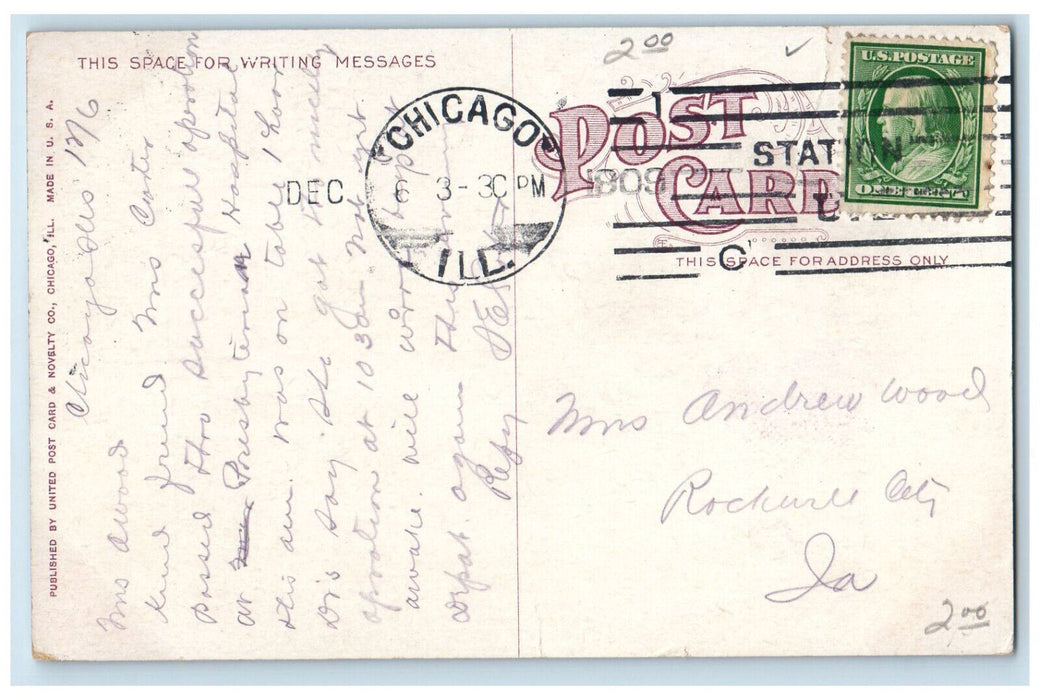 THIS SPACE FOR WRITING MESSAGES
PUBLISHED BY UNITED POST CARD & NOVELTY CO., CHICAGO, ILL. MADE IN U. S. A.
Chicago Ills 12/6
Mrs A Wood
Kind friend Mrs Carter
passed thro successful opration
at Presbyterian Hospital
this am. was on table 1 hour
Dr's say. She got nicely
oprotion at 10 30 am Not yet
awake. will write to
depot again this
Rspy
CHICAGO
DEC 6 3-30 PM 1909
ILL.
2.00
POST CARD
U.S. POSTAGE
STATION
U.S.
C
THIS SPACE FOR ADDRESS ONLY
Mrs Andrew Wood
Rockwell City
Ia
2.00